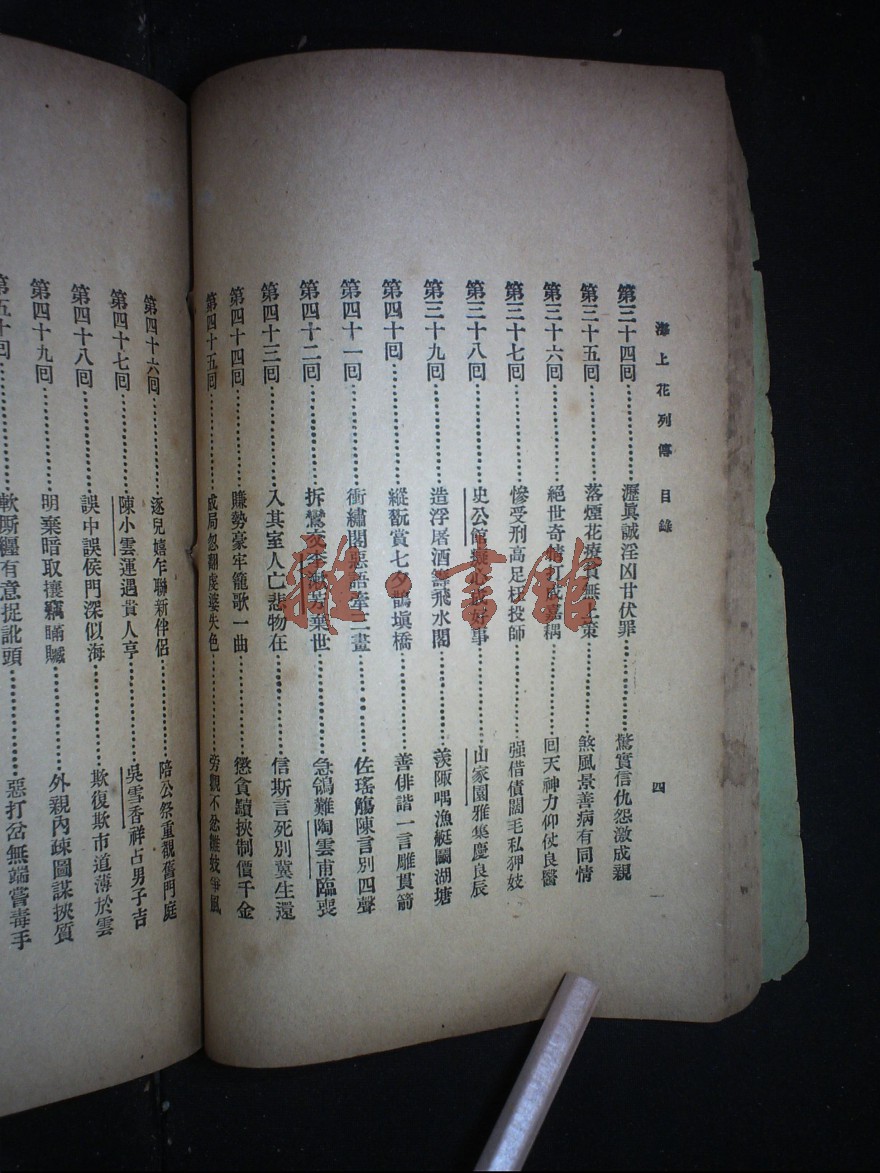 海上花列傳 目錄
四
第三十四回 瀝眞誠淫凶甘伏罪 驚實信仇怨激成親
第三十五回 落煙花療貧無上策 煞風景善病有同情
第三十六回 絕世奇情打成嘉耦 回天神力仰仗良醫
第三十七回 慘受刑高足枉投師 强借債闊毛私狎妓
第三十八回 史公館癡心成好事 山家園雅集慶良辰
第三十九回 造浮屠酒籌飛水閣 羨陬喁漁艇鬭湖塘
第四十回 縱翫賞七夕鵲塡橋 善俳諧一言雕貫箭
第四十一回 衝繡閣惡語牽三畫 佐瑤觴陳言別四聲
第四十二回 拆鸞交李漱芳棄世 急鴒難陶雲甫臨喪
第四十三回 入其室人亡悲物在 信斯言死別冀生還
第四十四回 賺勢豪牢籠歌一曲 懲貪黷挾制價千金
第四十五回 成局忽翻虔婆失色 旁觀不忿雛妓爭風
第四十六回 逐兒嬉乍聯新伴侶 陪公祭重覩舊門庭
第四十七回 陳小雲運遇貴人亨 吳雪香祥占男子吉
第四十八回 誤中誤侯門深似海 欺復欺市道薄於雲
第四十九回 明棄暗取攘竊瞞贓 外親內疎圖謀挾質
第五十回 軟厮纏有意捉訛頭 惡打岔無端嘗毒手
雅·言館